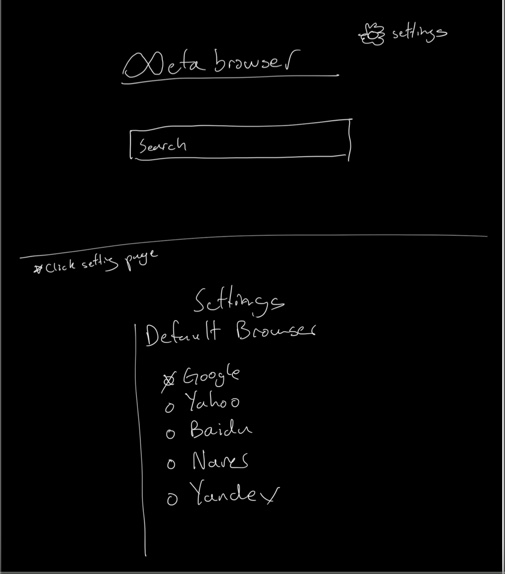 settings
Meta browser
Search
*Click setting page
Settings
Default Browser
Google
Yahoo
Baidu
Yandex